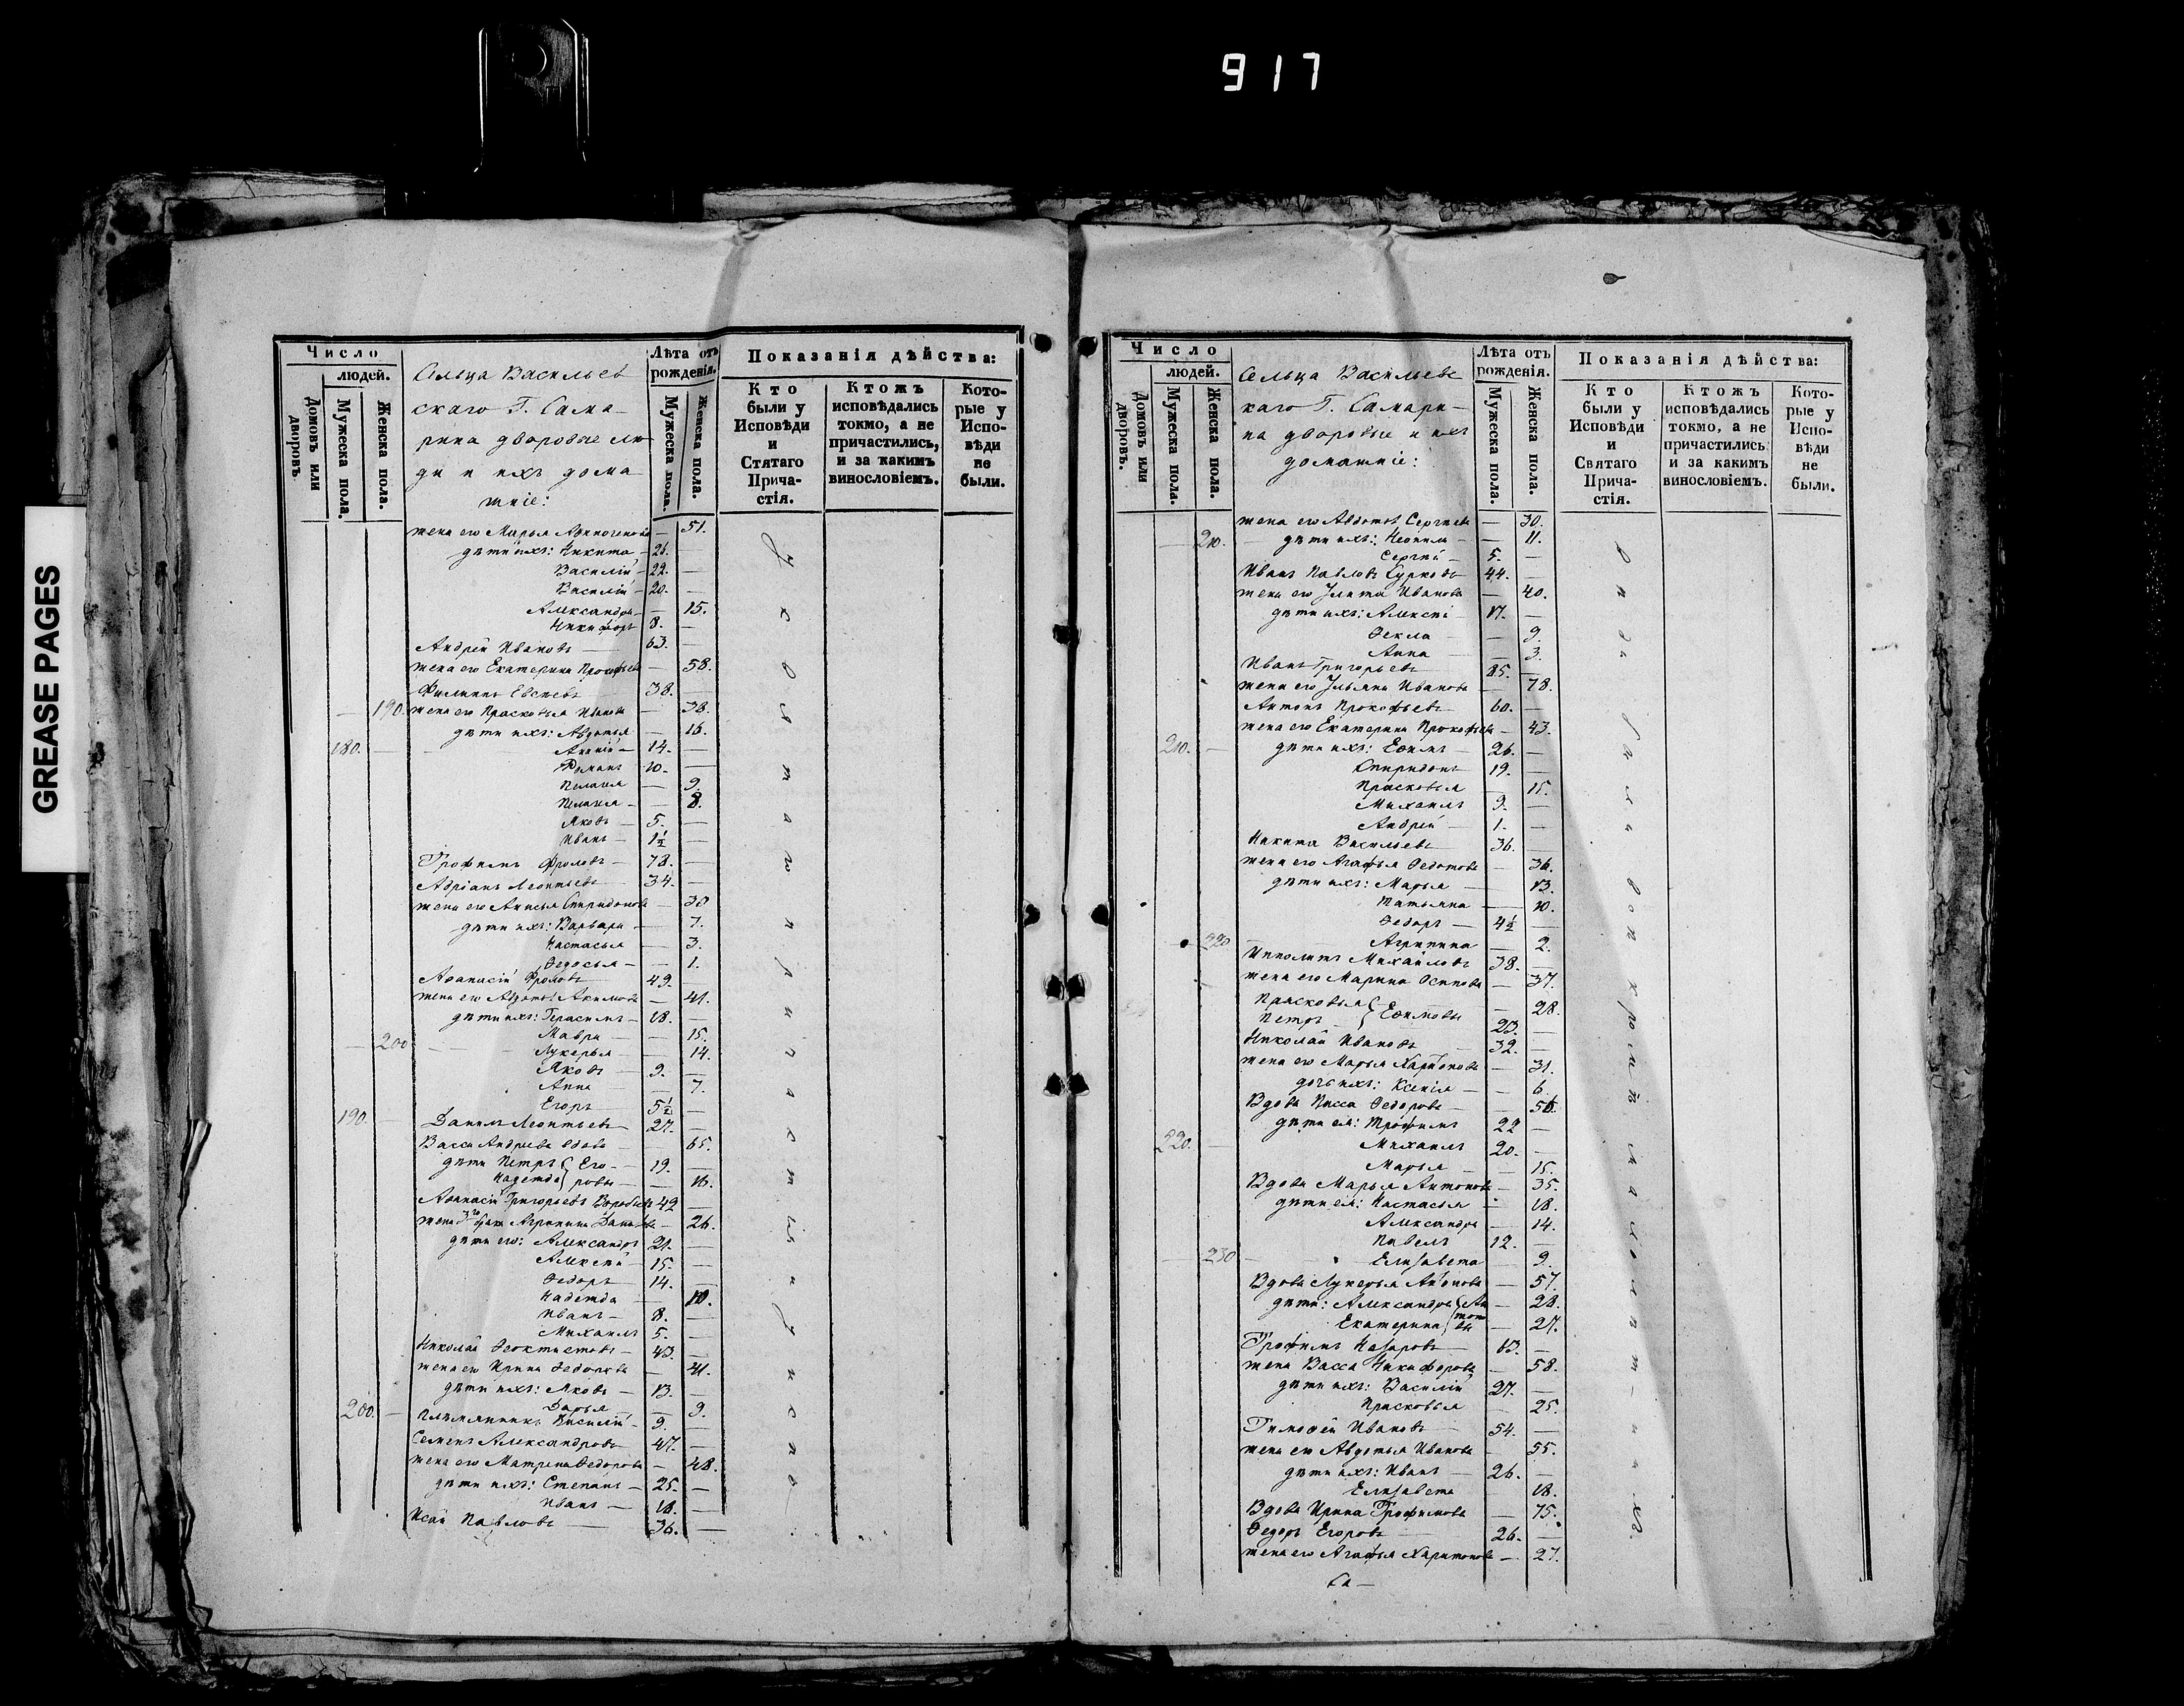 917
GREASE PAGES
Число
людей.
Домовъ или дворовъ
Мужеска пола.
Женска пола.
Сельца Васильев
скаго Г. Сама-
рина дворовые лю
ди и ихъ дома
шніе:
Лѣта отъ рожденія.
Мужеска пола.
Женска пола.
Показанія дѣйства:
Кто были у Исповѣди и Стятаго Прича-стія.
Ктожъ исповѣдались токмо, а не причастились, и за какимъ винословіемъ.
Кото-рые у Испо-вѣди не были.
жена его Марья — 51.
дѣти ихъ: Никита — 26.
Василій — 22. —
Василій — 20. —
Александра — — 15.
Никифоръ 8. —
Андрей Ивановъ — 63. —
жена его Екатерина Прокофьева — 58.
Филиппъ Евсѣевъ 38. —
190. жена его Прасковья Иванова — 38.
дѣти ихъ: Авдотья — 16.
180. — Ананій — 14. —
Романъ 10. —
Пелагея — 9.
Пелагея — — 8.
Яковъ — 5. —
Иванъ — 1½ —
Трофимъ Фроловъ — 78. —
Адріанъ Леонтьевъ 34. —
жена его Анисья Спиридонова — 30
дѣти ихъ: Варвара — — 7.
Настасья — 3.
Ѳедосья — — 1.
Аѳанасій Фроловъ 49. —
жена его Авдотья Акимова — 41.
дѣти ихъ: Герасимъ — 18. —
Мавра — — 15.
200 Лукерья — — 14.
Яковъ — 9. —
Анна — — 7.
Егоръ 5½ —
190. — Данилъ Леонтьевъ — 27. —
Васса Андреева вдова — — 65.
дѣти Петръ { Его- — 19. —
Надежда } ровы — — 16.
Аѳанасій Григорьевъ Воробьевъ 42 —
жена 3го брака Агрипина — 26.
дѣти его: Александръ 21. —
Алексѣй — 15. —
Ѳедоръ — 14. —
Надежда — 10.
Иванъ — 8. —
Михаилъ 5. —
Николай Ѳеоктистовъ — 43. —
жена его Ирина Ѳедорова — 41.
дѣти ихъ: Яковъ — 13. —
Дарья — — 9.
200. — племянникъ Василій — 9. —
Семенъ Александровъ 47. —
жена его Матрена Ѳедорова — 48.
дѣти ихъ: Степанъ — 25. —
Иванъ — 18. —
Исай Павловъ — 36. —
у исповѣди
Число
людей.
Домовъ или дворовъ.
Мужеска пола.
Женска пола.
Сельца Васильевс
каго Г. Самари-
на дворовые и ихъ
домашніе:
Лѣта отъ рожденія.
Мужеска пола.
Женска пола.
Показанія дѣйства:
Кто были у Исповѣди и Святаго Прича-стія.
Ктожъ исповѣдались токмо, а не причастились и за какимъ винословіемъ.
Кото-рые у Испо-вѣди не были.
жена его Авдотья Сергѣева — 30.
210. — дѣти ихъ: Неонила — — 11.
Сергѣй 5. —
Иванъ Павловъ Сурковъ 44. —
жена его Улита Иванова — 40.
дѣти ихъ: Алексѣй — 17. —
Ѳекла — — 9.
Анна — — 3.
Иванъ Григорьевъ 85. —
жена его Ульяна Иванова — 78.
Антонъ Прокофьевъ 60. —
жена его Екатерина Прокофьева — 43.
210. — дѣти ихъ: Ефимъ — 26. —
Спиридонъ 19. —
Прасковья — 15.
Михаилъ 9. —
Андрей — 1. —
Никита Васильевъ — 36. —
жена его Агафья Ѳедотова — 36.
дѣти ихъ: Марья — — 13.
Татьяна — — 10.
Ѳедоръ — 4½ —
220 Агрипина — 2.
Ипполитъ Михайловъ 38. —
жена его Марина Осипова — 37.
Прасковья { Ефимовы — 28.
Петръ 23. —
Николай Ивановъ — 32. —
жена его Марья Харитонова — 31.
дочь ихъ: Ксенія — — 6.
Вдова Васса Ѳедорова — — 56.
дѣти ея: Трофимъ 22 —
220. — Михаилъ 20. —
Марья — — 15.
Вдова Марья Антонова — 35.
дѣти ея: Настасья — 18.
Александра — 14.
Павелъ 12. —
230 Елизавета — 9.
Вдова Лукерья — 57.
дѣти: Александра { Ан — 28.
Екатерина { тоно вы — 27.
Трофимъ Назаровъ — 63. —
жена Васса Никифорова — 58.
дѣти ихъ: Василій 27. —
Прасковья — 25.
Тимофей Ивановъ — 54. —
жена его Авдотья Иванова — 55.
дѣти ихъ: Иванъ — 26. —
Елизавета — 18.
Вдова Ирина Трофимова — 75.
Ѳедоръ Егоровъ 26. —
жена его Агафья Харитонова — 27.